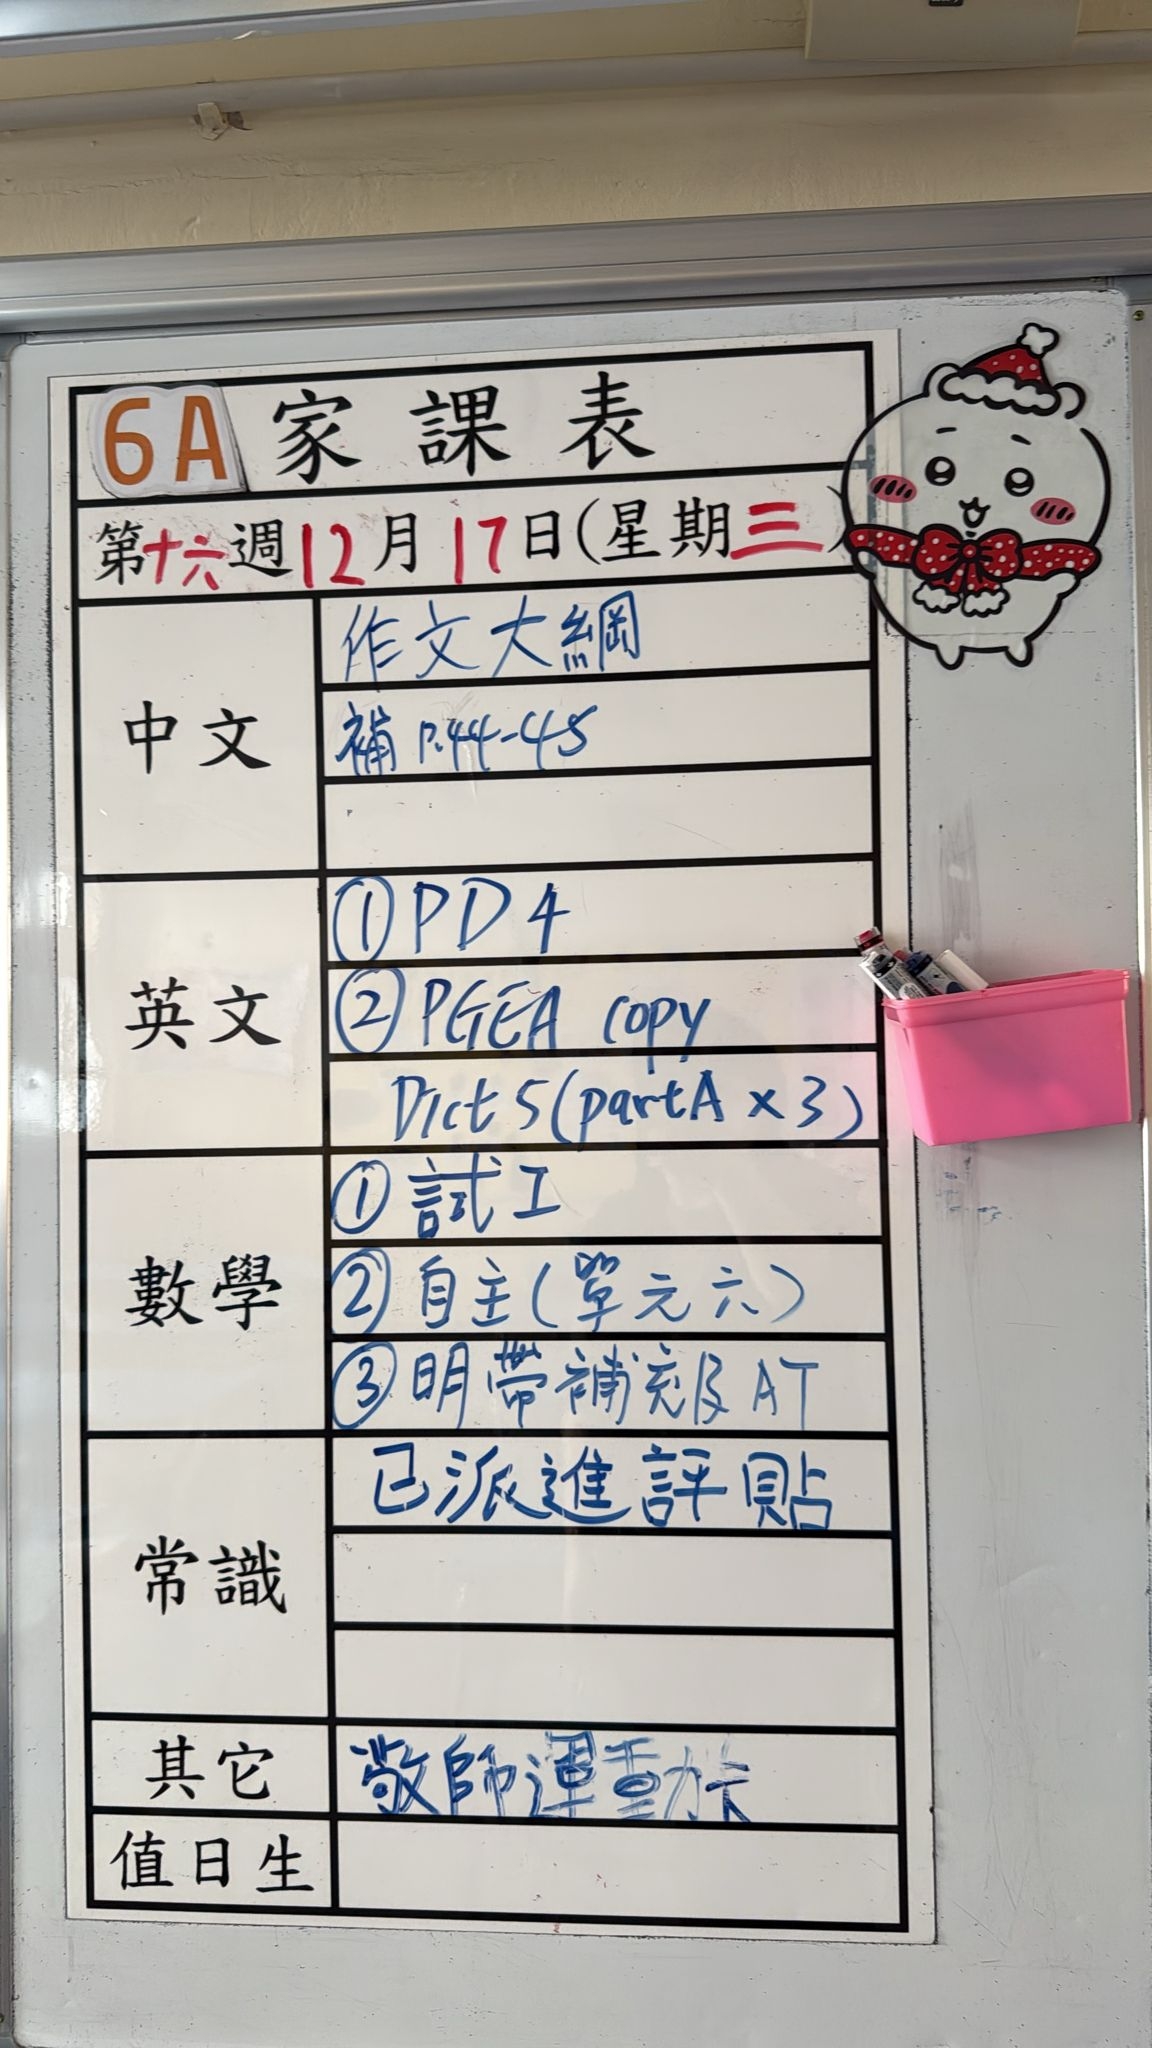 6A 家課表
第十六週12月17日(星期三)
中文
作文大綱
補 P.44-45
英文
① PD 4
② PGEA copy
Dict 5 (part A x 3)
數學
① 試工
② 自主(單元六)
③ 明帶補充及 AT
常識
已派進評貼
其它
敬師運動卡
值日生